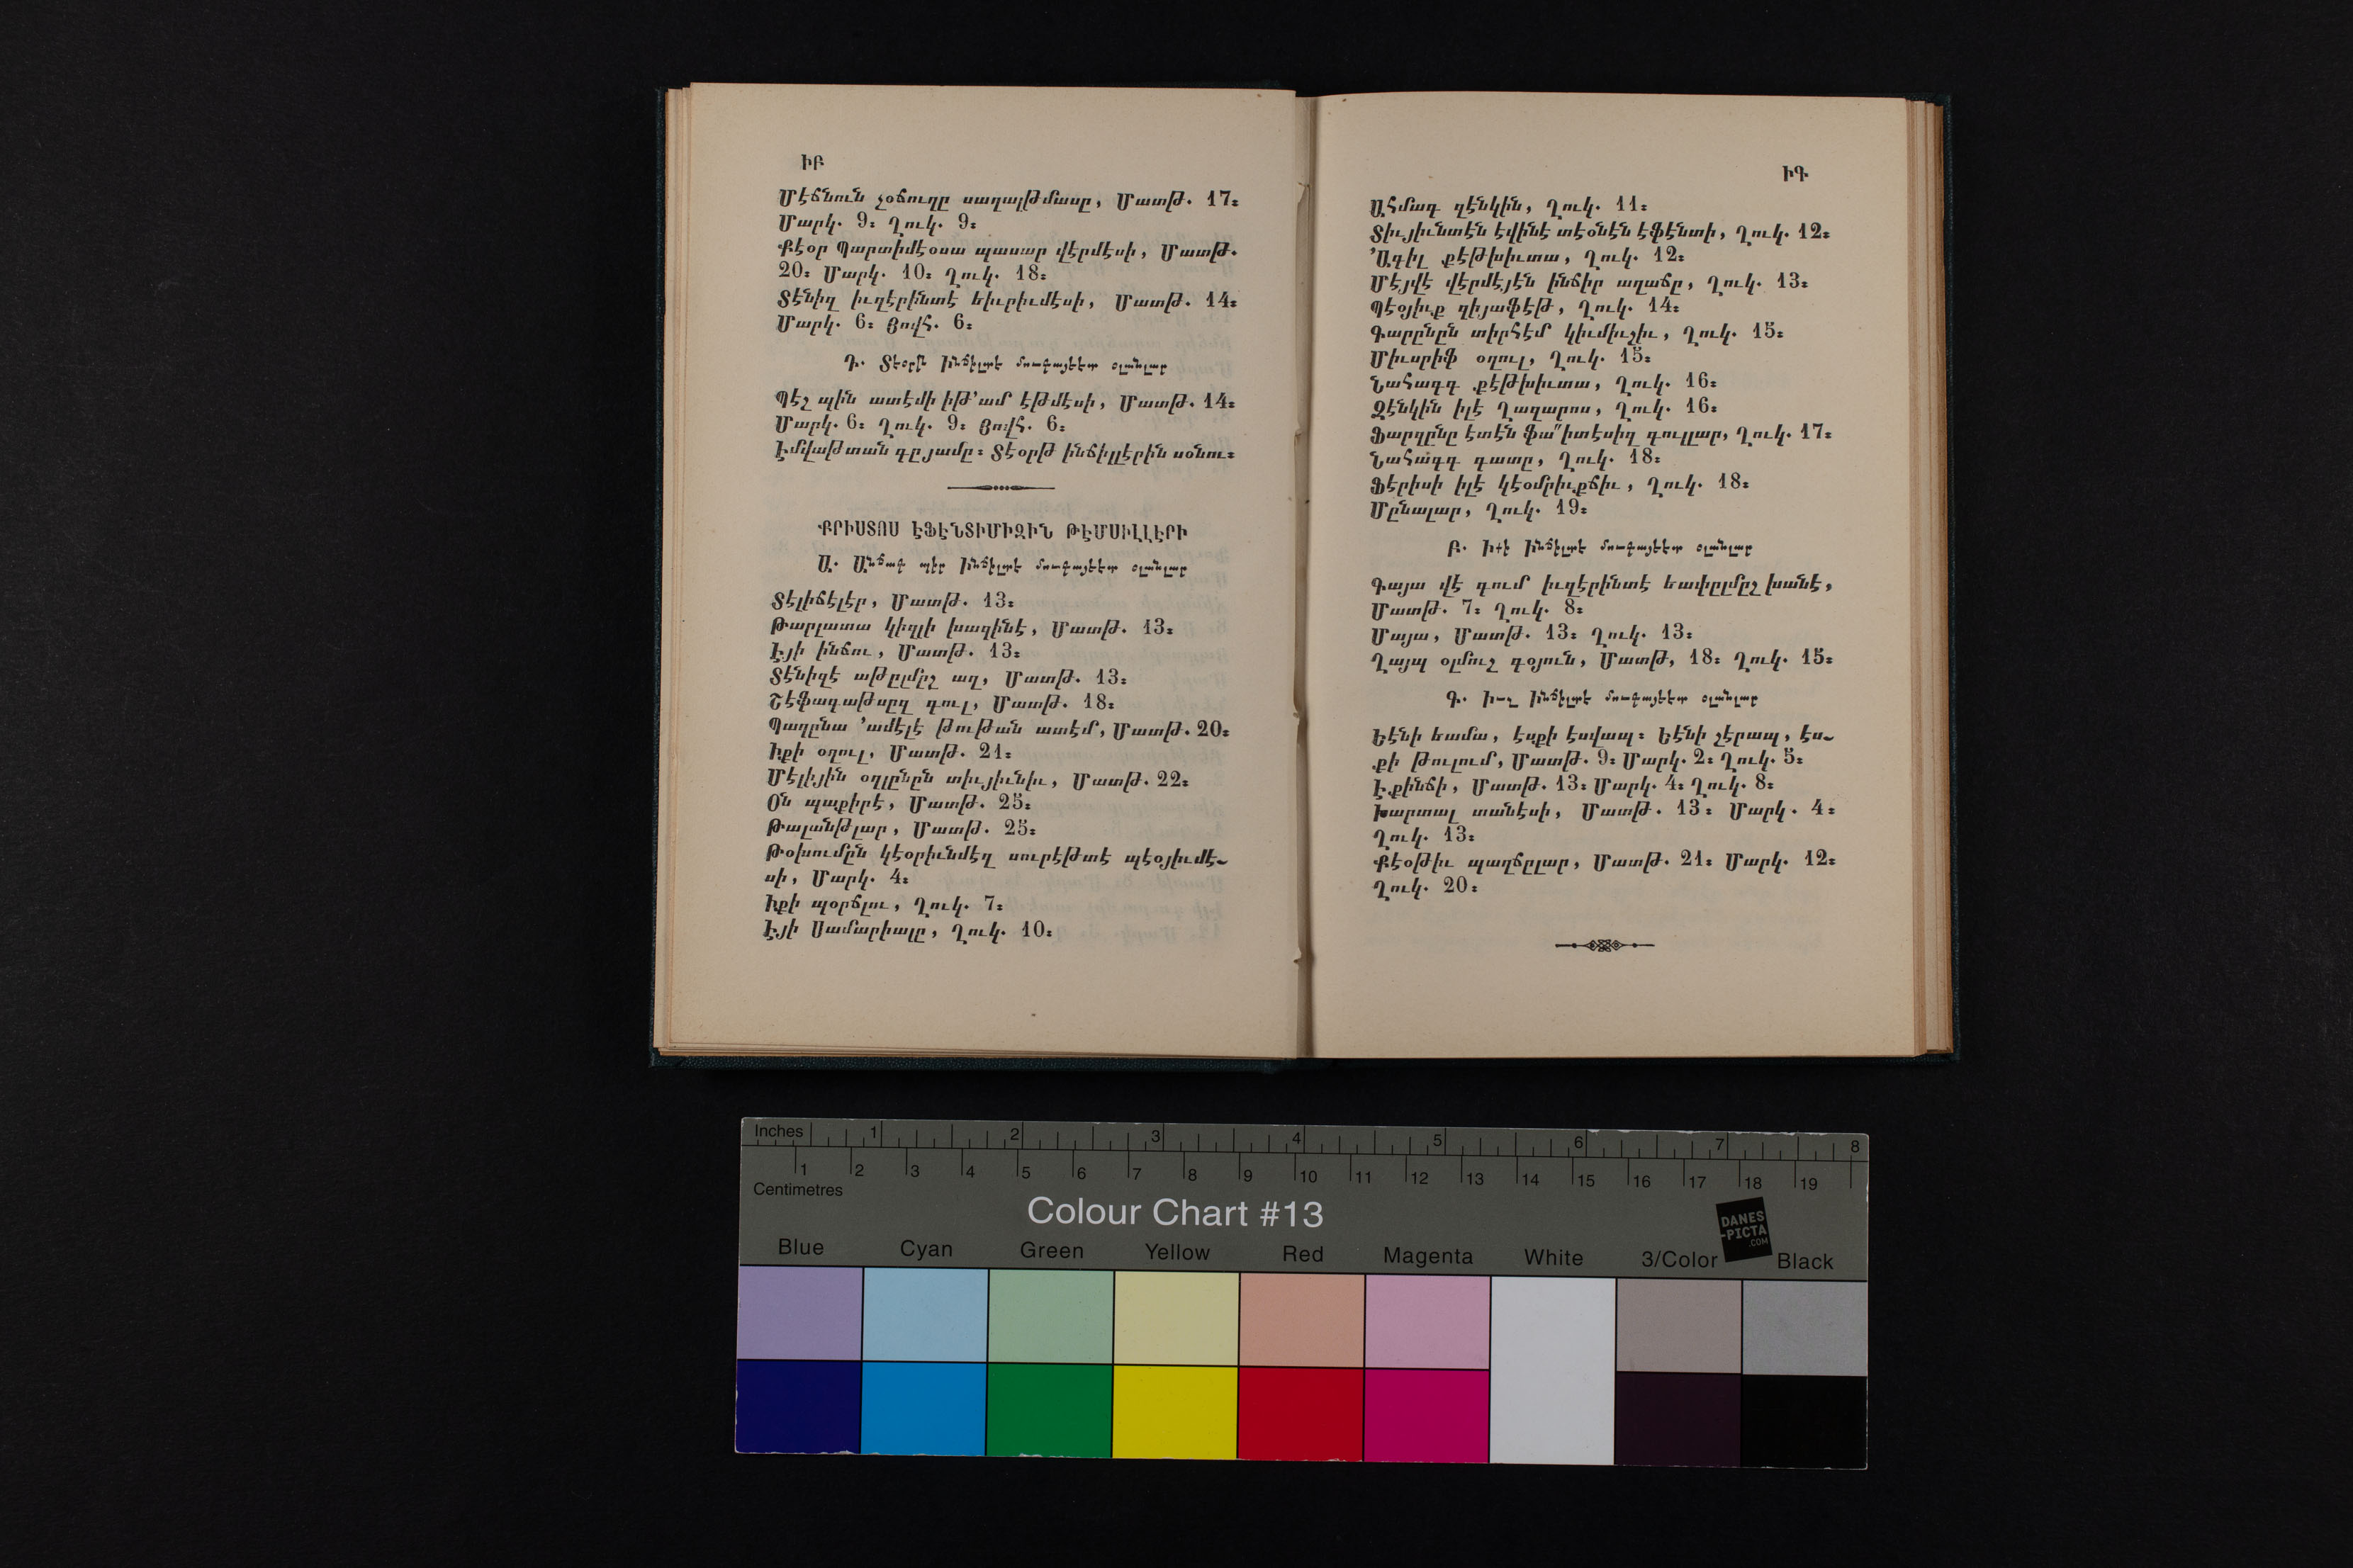 ԻԲ
Մէճնուն չօճուղը սաղալթմասը, Մատթ. 17։
Մարկ. 9։ Ղուկ. 9։
Քէօր Պարտիմէօսա պասար վէրմէսի, Մատթ.
20։ Մարկ. 10։ Ղուկ. 18։
Տէնիզ իւզէրինտէ եիւրիւմէսի, Մատթ. 14։
Մարկ. 6։ Յովհ. 6։
Դ. Տէօրն Ինճիլտէ մուգայեետ օլանլար
Պէշ պին ատէմի իթ՚ամ էթմէսի, Մատթ. 14։
Մարկ. 6։ Ղուկ. 9։ Յովհ. 6։
Էմվաթտան գըյամը։ Տէօրթ ինճիլլէրին սօնու։
ՔՐԻՍՏՈՍ ԷՖԷՆՏԻՄԻԶԻՆ ԹԷՄՍԻԼԼԷՐԻ
Ա. Անճագ պիր Ինճիլտէ մուգայեետ օլանլար
Տէլիճէլէր, Մատթ. 13։
Թարլատա կիզլի խազինէ, Մատթ. 13։
Էյի ինճու, Մատթ. 13։
Տէնիզէ աթըլմըշ աղ, Մատթ. 13։
Շէֆագաթսըզ գուլ, Մատթ. 18։
Պաղընա ՚ամէլէ թութան ատէմ, Մատթ. 20։
Իքի օղուլ, Մատթ. 21։
Մէլիյին օղլընըն տիւյիւնիւ, Մատթ. 22։
Օն պաքիրէ, Մատթ. 25։
Թալանթլար, Մատթ. 25։
Թօխումըն կէօրիւնմէզ սուրէթտէ պէօյիւմէ֊
սի, Մարկ. 4։
Իքի պօրճլու, Ղուկ. 7։
Էյի Սամարիալը, Ղուկ. 10։
ԻԳ
Ահմագ զէնկին, Ղուկ. 11։
Տիւյիւնտէն էվինէ տէօնէն էֆէնտի, Ղուկ. 12։
՚Ագիլ քէթխիւտա, Ղուկ. 12։
Մէյվէ վէրմէյէն ինճիր աղաճը, Ղուկ. 13։
Պէօյիւք զիյաֆէթ, Ղուկ. 14։
Գարընըն տիրհէմ կիւմիւշիւ, Ղուկ. 15։
Միւսրիֆ օղուլ, Ղուկ. 15։
Նահագգ քէթխիւտա, Ղուկ. 16։
Զէնկին իլէ Ղազարոս, Ղուկ. 16։
Ֆարզընը էտէն ֆա՞իտէսիզ գուլլար, Ղուկ. 17։
Նահագգ գատը, Ղուկ. 18։
Ֆէրիսի իլէ կէօմրիւքճիւ, Ղուկ. 18։
Մընալար, Ղուկ. 19։
Բ. Իքի Ինճիլտէ մուգայեետ օլանլար
Գայա վէ գում իւզէրինտէ եափըլմըշ խանէ,
Մատթ. 7։ Ղուկ. 8։
Մայա, Մատթ. 13։ Ղուկ. 13։
Ղայպ օլմուշ գօյուն, Մատթ, 18։ Ղուկ. 15։
Գ. Իւչ Ինճիլտէ մուգայեետ օլանլար
Եէնի եամա, էսքի էսվապ։ Եէնի շէրապ, էս֊
քի թուլում, Մատթ. 9։ Մարկ. 2։ Ղուկ. 5։
Էքինճի, Մատթ. 13։ Մարկ. 4։ Ղուկ. 8։
Խարտալ տանէսի, Մատթ. 13։ Մարկ. 4։
Ղուկ. 13։
Քէօթիւ պաղճըլար, Մատթ. 21։ Մարկ. 12։
Ղուկ. 20։
Inches 1 2 3 4 5 6 7 8
1 2 3 4 5 6 7 8 9 10 11 12 13 14 15 16 17 18 19
Centimetres
Colour Chart #13
DANES
-PICTA
.COM
Blue Cyan Green Yellow Red Magenta White 3/Color Black